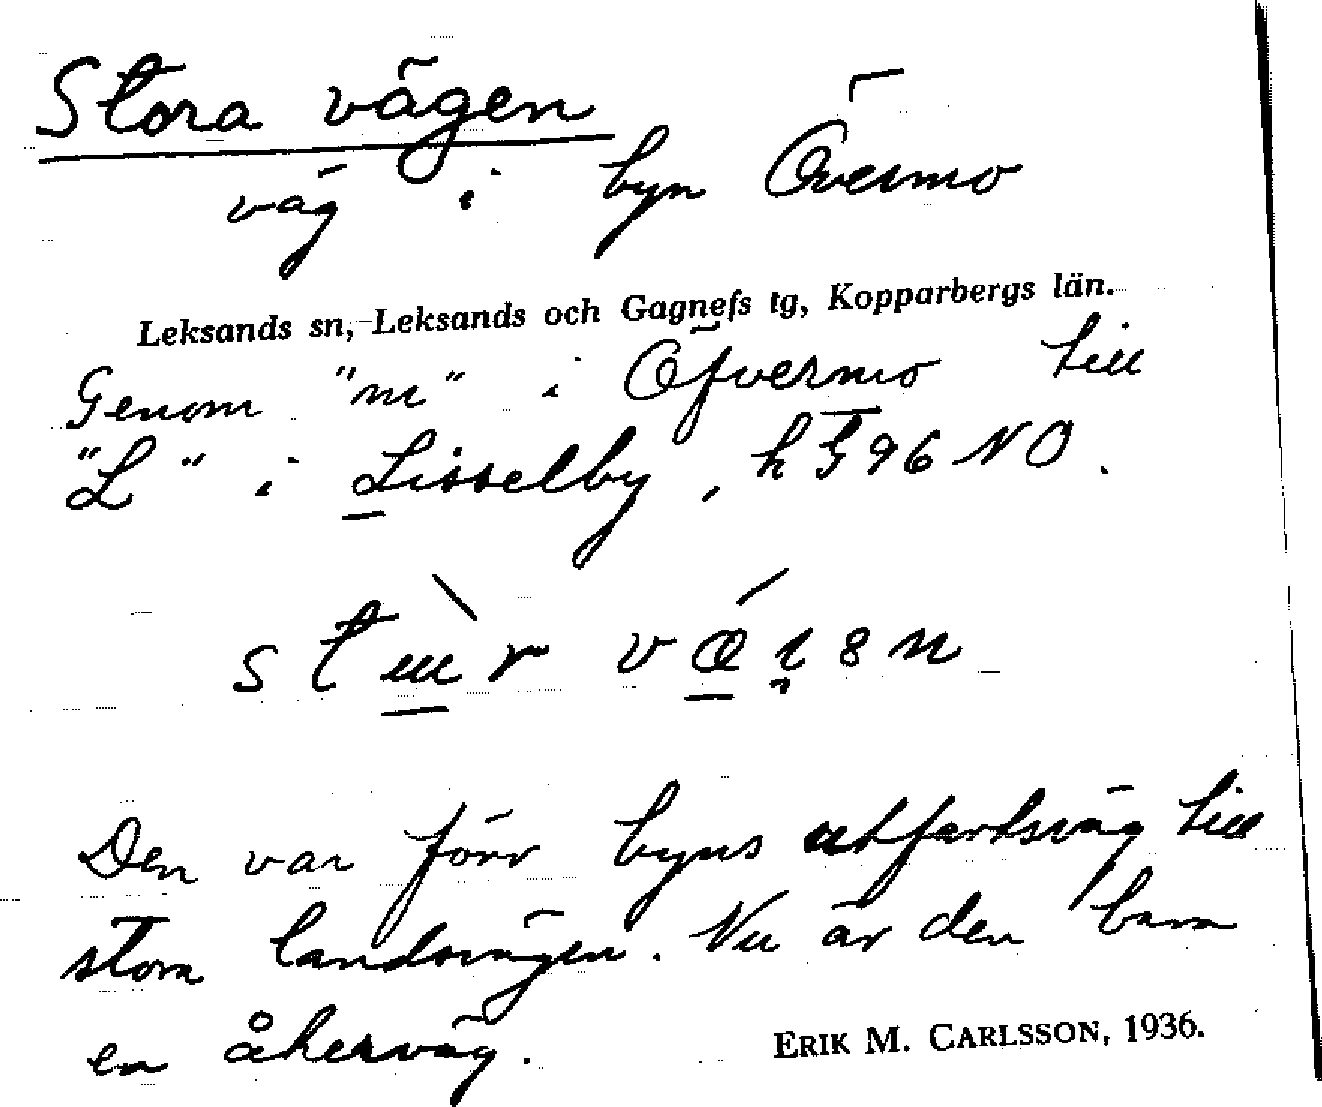 Stora vägen
väg i byn Övermo
Leksands sn, Leksands och Gagnefs tg, Kopparbergs län.
Genom "m" i Öfvermo till
"L" i Lisselby, h 96 NO.
Den var förr byns utfartsväg till
stora landsvägen. Nu är den bara
en åkerväg.
ERIK M. CARLSSON, 1936.